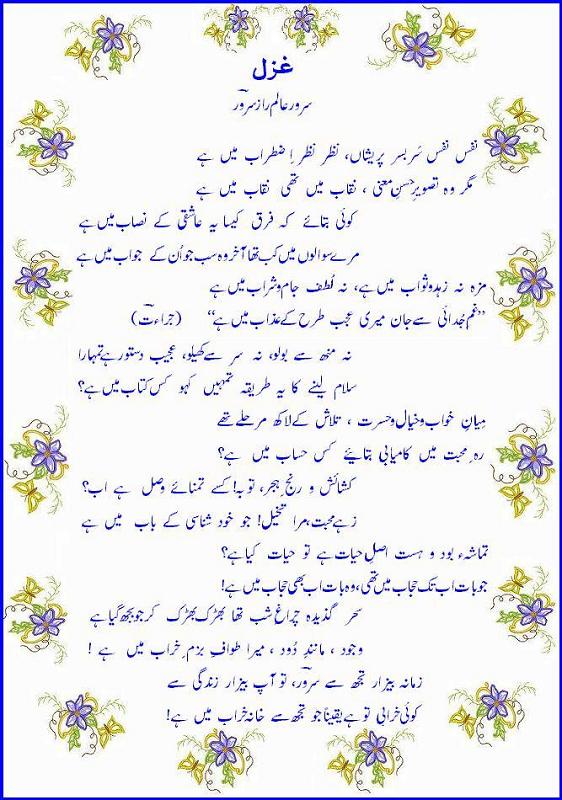 غزل
سرور عالم راز سرورؔ
نفس نفس سَر بسر پریشاں، نظر نظر اِضطراب میں ہے
مگر وہ تصویرِ حسنِ معنی، نقاب میں تھی نقاب میں ہے
کوئی بتائے کہ فرق کیسا یہ عاشقی کے نصاب میں ہے
مرے سوالوں میں کب تھا آخر وہ سب جو اُن کے جواب میں ہے
مزہ نہ زہد و ثواب میں ہے، نہ لُطف جام و شراب میں ہے
’’غمِ جُدائی سے جان میری عجب طرح کے عذاب میں ہے‘‘ (جراءتؔ)
نہ منھ سے بولو، نہ سر سے کھیلو، عجیب دستور ہے تمہارا
سلام لینے کا یہ طریقہ تمہیں کہو کس کتاب میں ہے؟
میانِ خواب و خیال و حسرت، تلاش کے لاکھ مرحلے تھے
رہِ محبت میں کامیابی بتائیے کس حساب میں ہے؟
کشائش و رنجِ ہجر، توبہ! کسے تمنائے وصل ہے اب؟
زہے محبت، مرا تخیل! جو خود شناسی کے باب میں ہے
تماشہء بود و ہست اصلِ حیات ہے تو حیات کیا ہے؟
جو بات اب تک حجاب میں تھی، وہ بات اب بھی حجاب میں ہے!
سحر گذیدہ چراغِ شب تھا بھڑک بھڑک کر جو بجھ گیا ہے
وجود، مانندِ دُود، میرا طوافِ بزمِ خراب میں ہے!
زمانہ بیزار تجھ سے سرورؔ، تو آپ بیزار زندگی سے
کوئی خرابی تو ہے یقیناً جو تجھ سے خانہ خراب میں ہے!